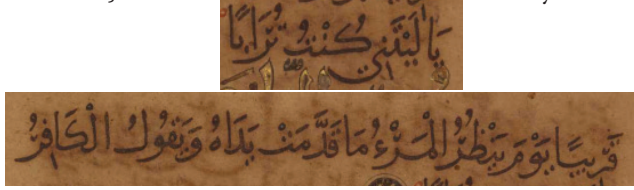 يَا لَيْتَنِي كُنْتُ تُرَابًا
قَرِيبًا يَوْمَ يَنْظُرُ الْمَرْءُ مَا قَدَّمَتْ يَدَاهُ وَيَقُولُ الْكَافِرُ